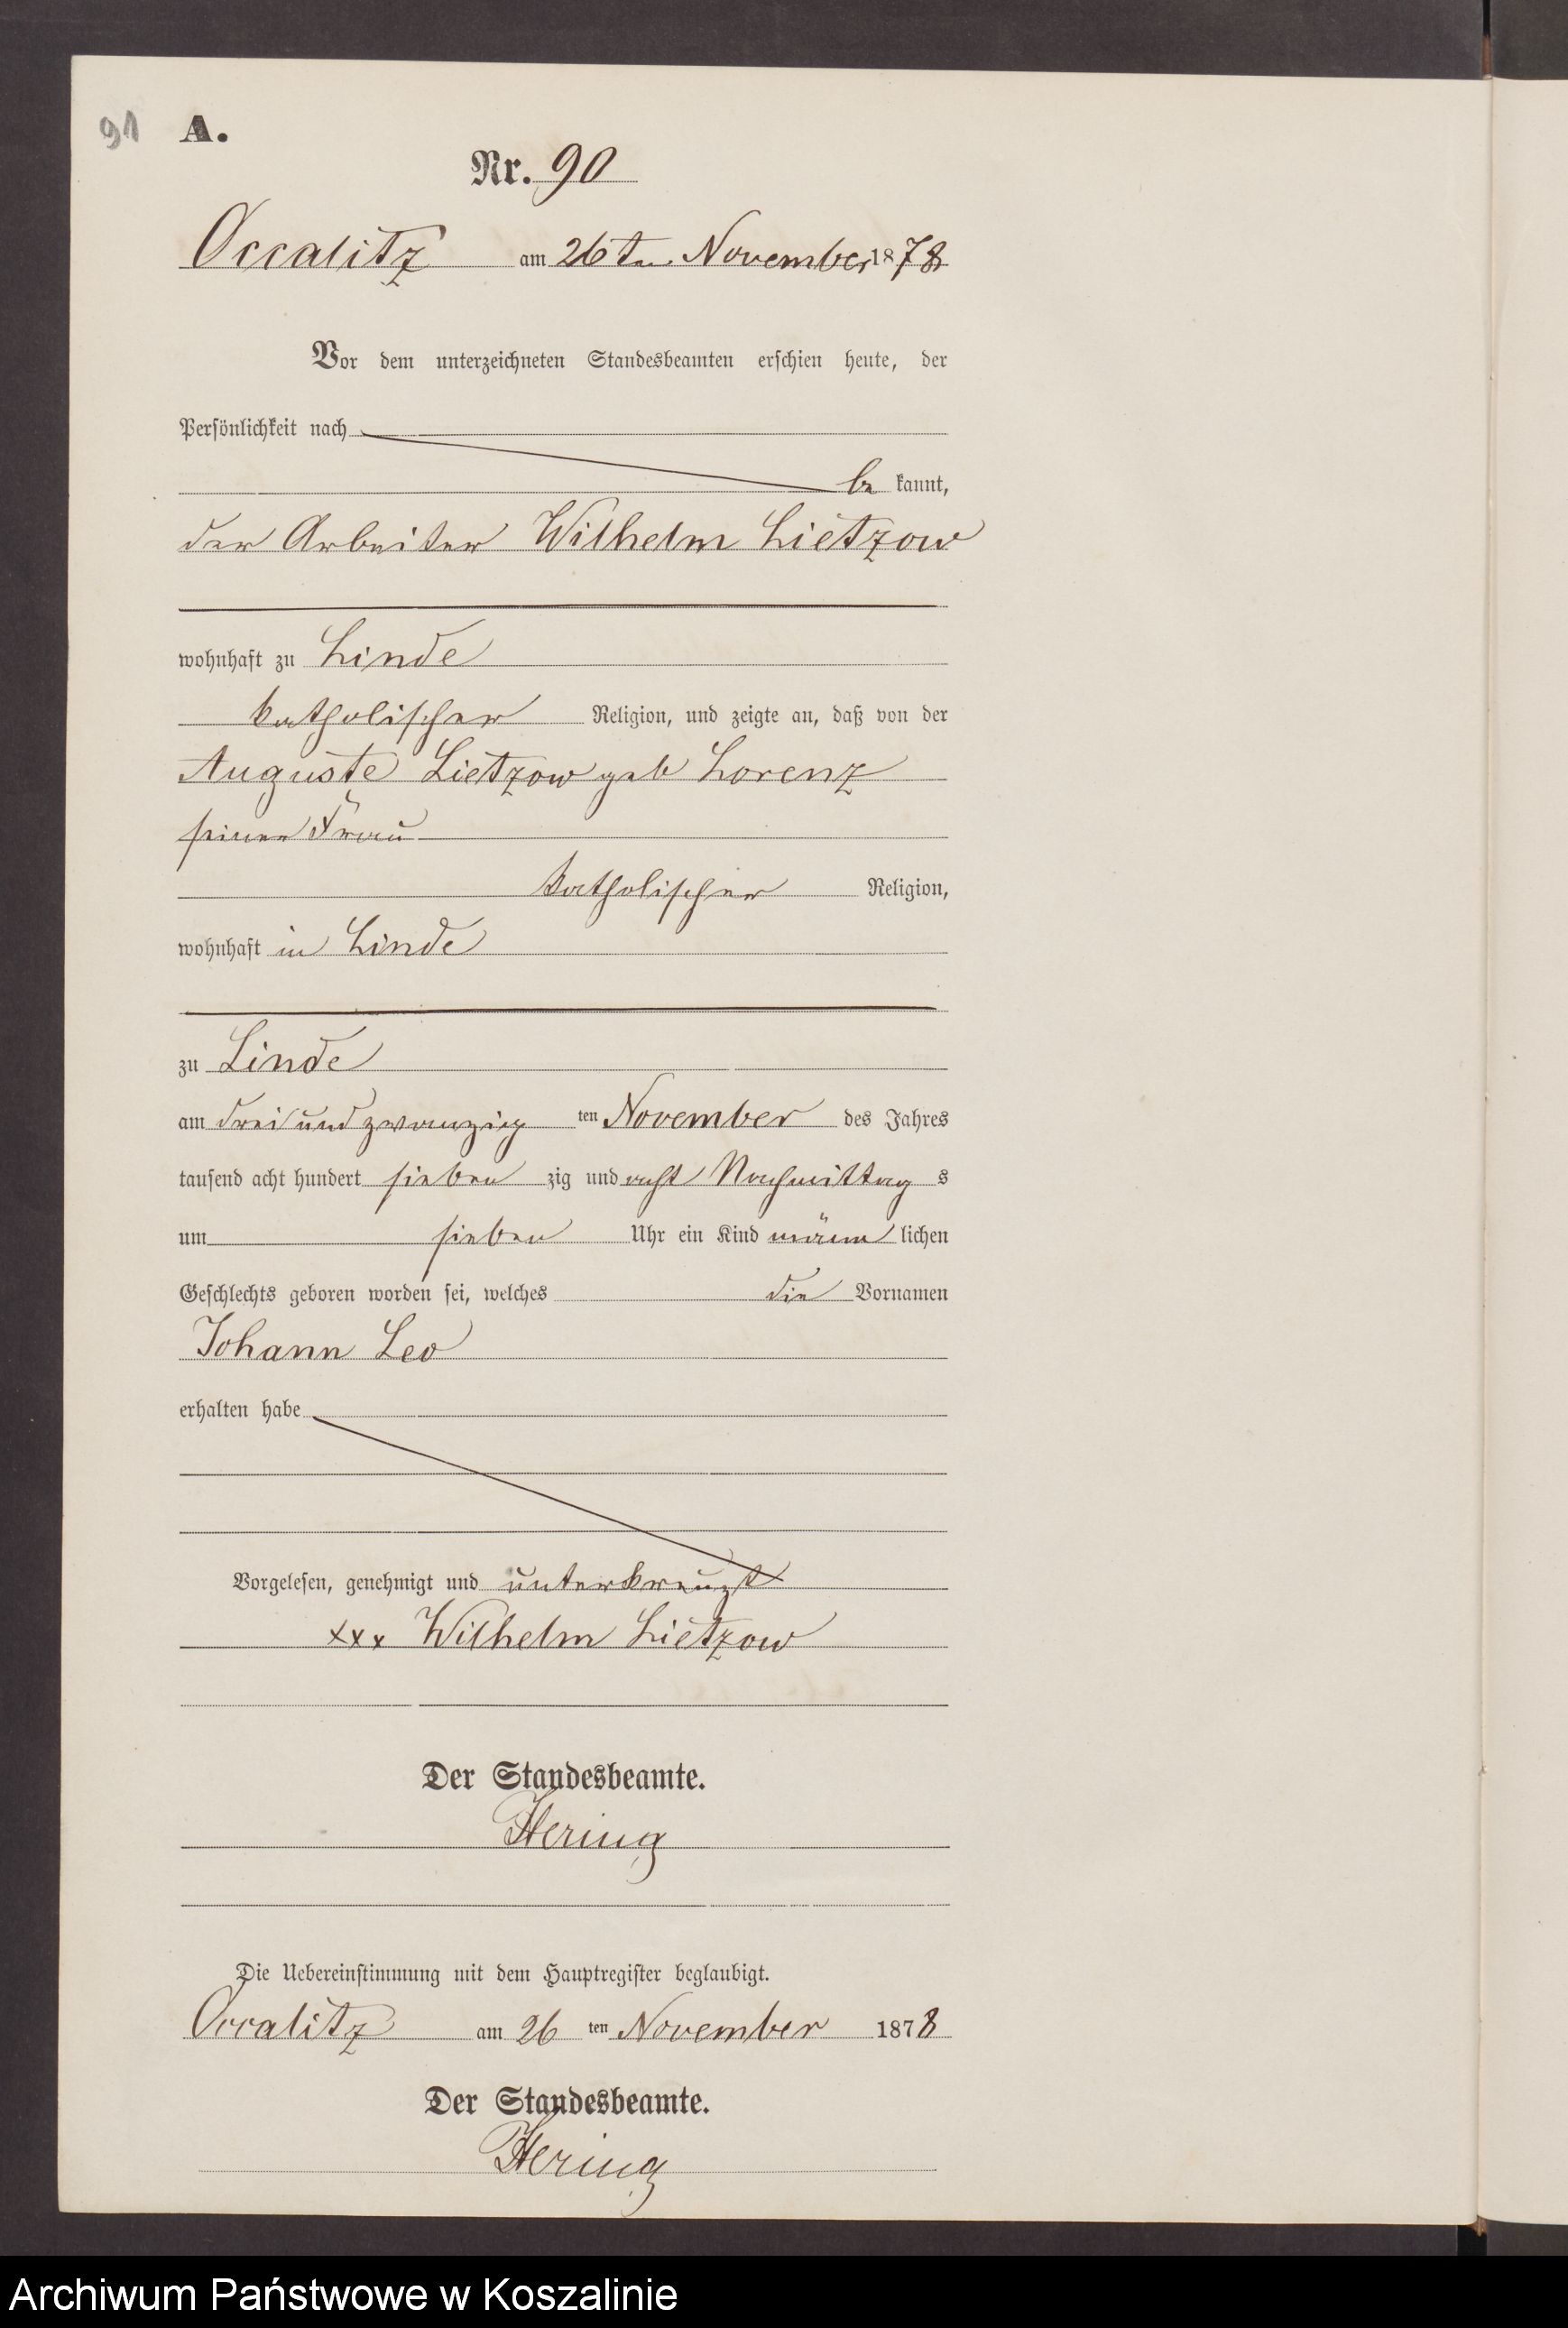 91 A.
Nr. 90
Occalitz am 26ten November 1878
Vor dem unterzeichneten Standesbeamten erschien heute, der
Persönlichkeit nach
be kannt,
der Arbeiter Wilhelm Lietzow
wohnhaft zu Linde
katholischer Religion, und zeigte an, daß von der
Auguste Lietzow geb Lorenz
seiner Frau
katholischer Religion,
wohnhaft in Linde
zu Linde
am drei und zwanzig ten November des Jahres
tausend acht hundert sieben zig und acht Nachmittag s
um sieben Uhr ein Kind männ lichen
Geschlechts geboren worden sei, welches die Vornamen
Johann Leo
erhalten habe
Vorgelesen, genehmigt und unterkreuzt
xxx Wilhelm Lietzow
Der Standesbeamte.
Hering
Die Uebereinstimmung mit dem Hauptregister beglaubigt.
Occalitz am 26 ten November 1878
Der Standesbeamte.
Hering
Archiwum Państwowe w Koszalinie